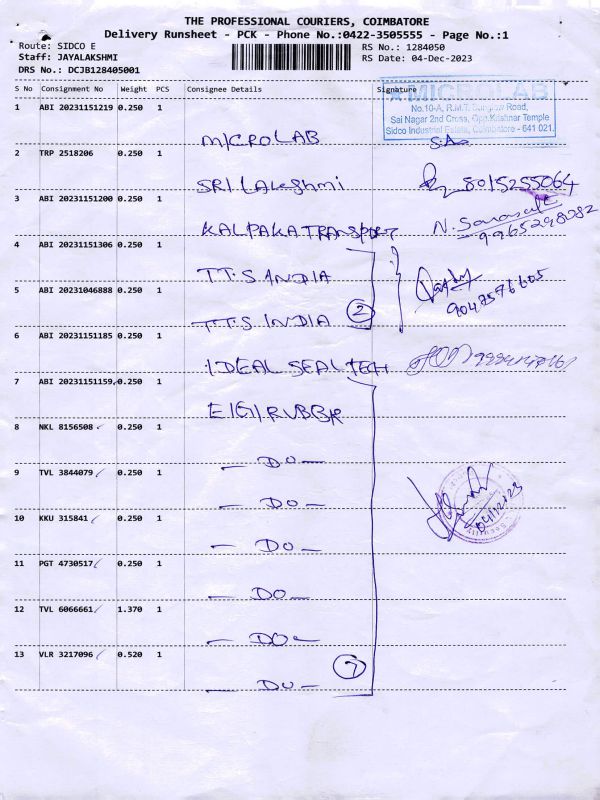 THE PROFESSIONAL COURIERS, COIMBATORE
Delivery Runsheet - PCK - Phone No.:0422-3505555 - Page No.:1
Route: SIDCO E
Staff: JAYALAKSHMI
DRS No.: DCJB128405001
RS No.: 1284050
RS Date: 04-Dec-2023
S No Consignment No Weight PCS Consignee Details Signature
MICROLAB
No.10-A, R.M.T. Bungalow Road,
Sai Nagar 2nd Cross, Opp.Krishnar Temple
Sidco Industrial Estate, Coimbatore - 641 021.
1 ABI 20231151219 0.250 1
MICROLAB
2 TRP 2518206 0.250 1
SRI LAKSHMI 8015255064
3 ABI 20231151200 0.250 1
KALPAKA TRANSPORT N. Saraswathi
9965298082
4 ABI 20231151306 0.250 1
TT.S INDIA
9047576605
5 ABI 20231046888 0.250 1
TT.S INDIA 2
6 ABI 20231151185 0.250 1
IDEAL SEAL TECH
7 ABI 20231151159, 0.250 1
ElGI RUBBER
8 NKL 8156508 0.250 1
— DO —
9 TVL 3844079 0.250 1
— DO —
04/12/23
10 KKU 315841 0.250 1
— DO —
11 PGT 4730517 0.250 1
— DO —
12 TVL 6066661 1.370 1
— DO —
13 VLR 3217096 0.520 1
— DO — 7